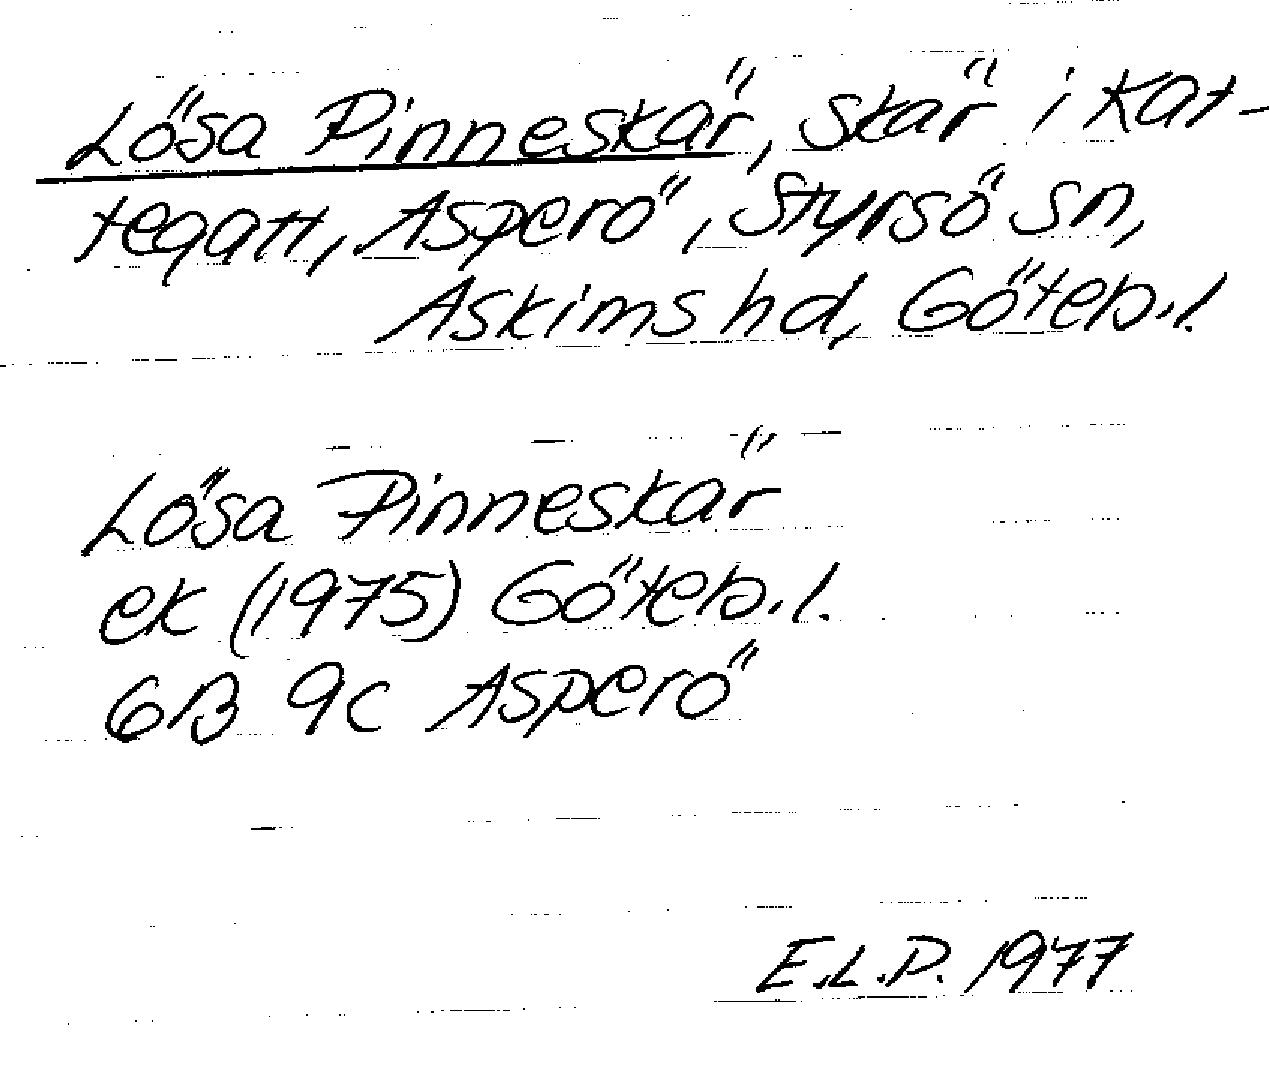 Lösa Pinneskär, skär i Kat-
tegatt, Asperö, Styrsö sn,
Askims hd, Göteb.l.
Lösa Pinneskär
ek (1975) Göteb.l.
6B 9c Asperö
E.L.P. 1977